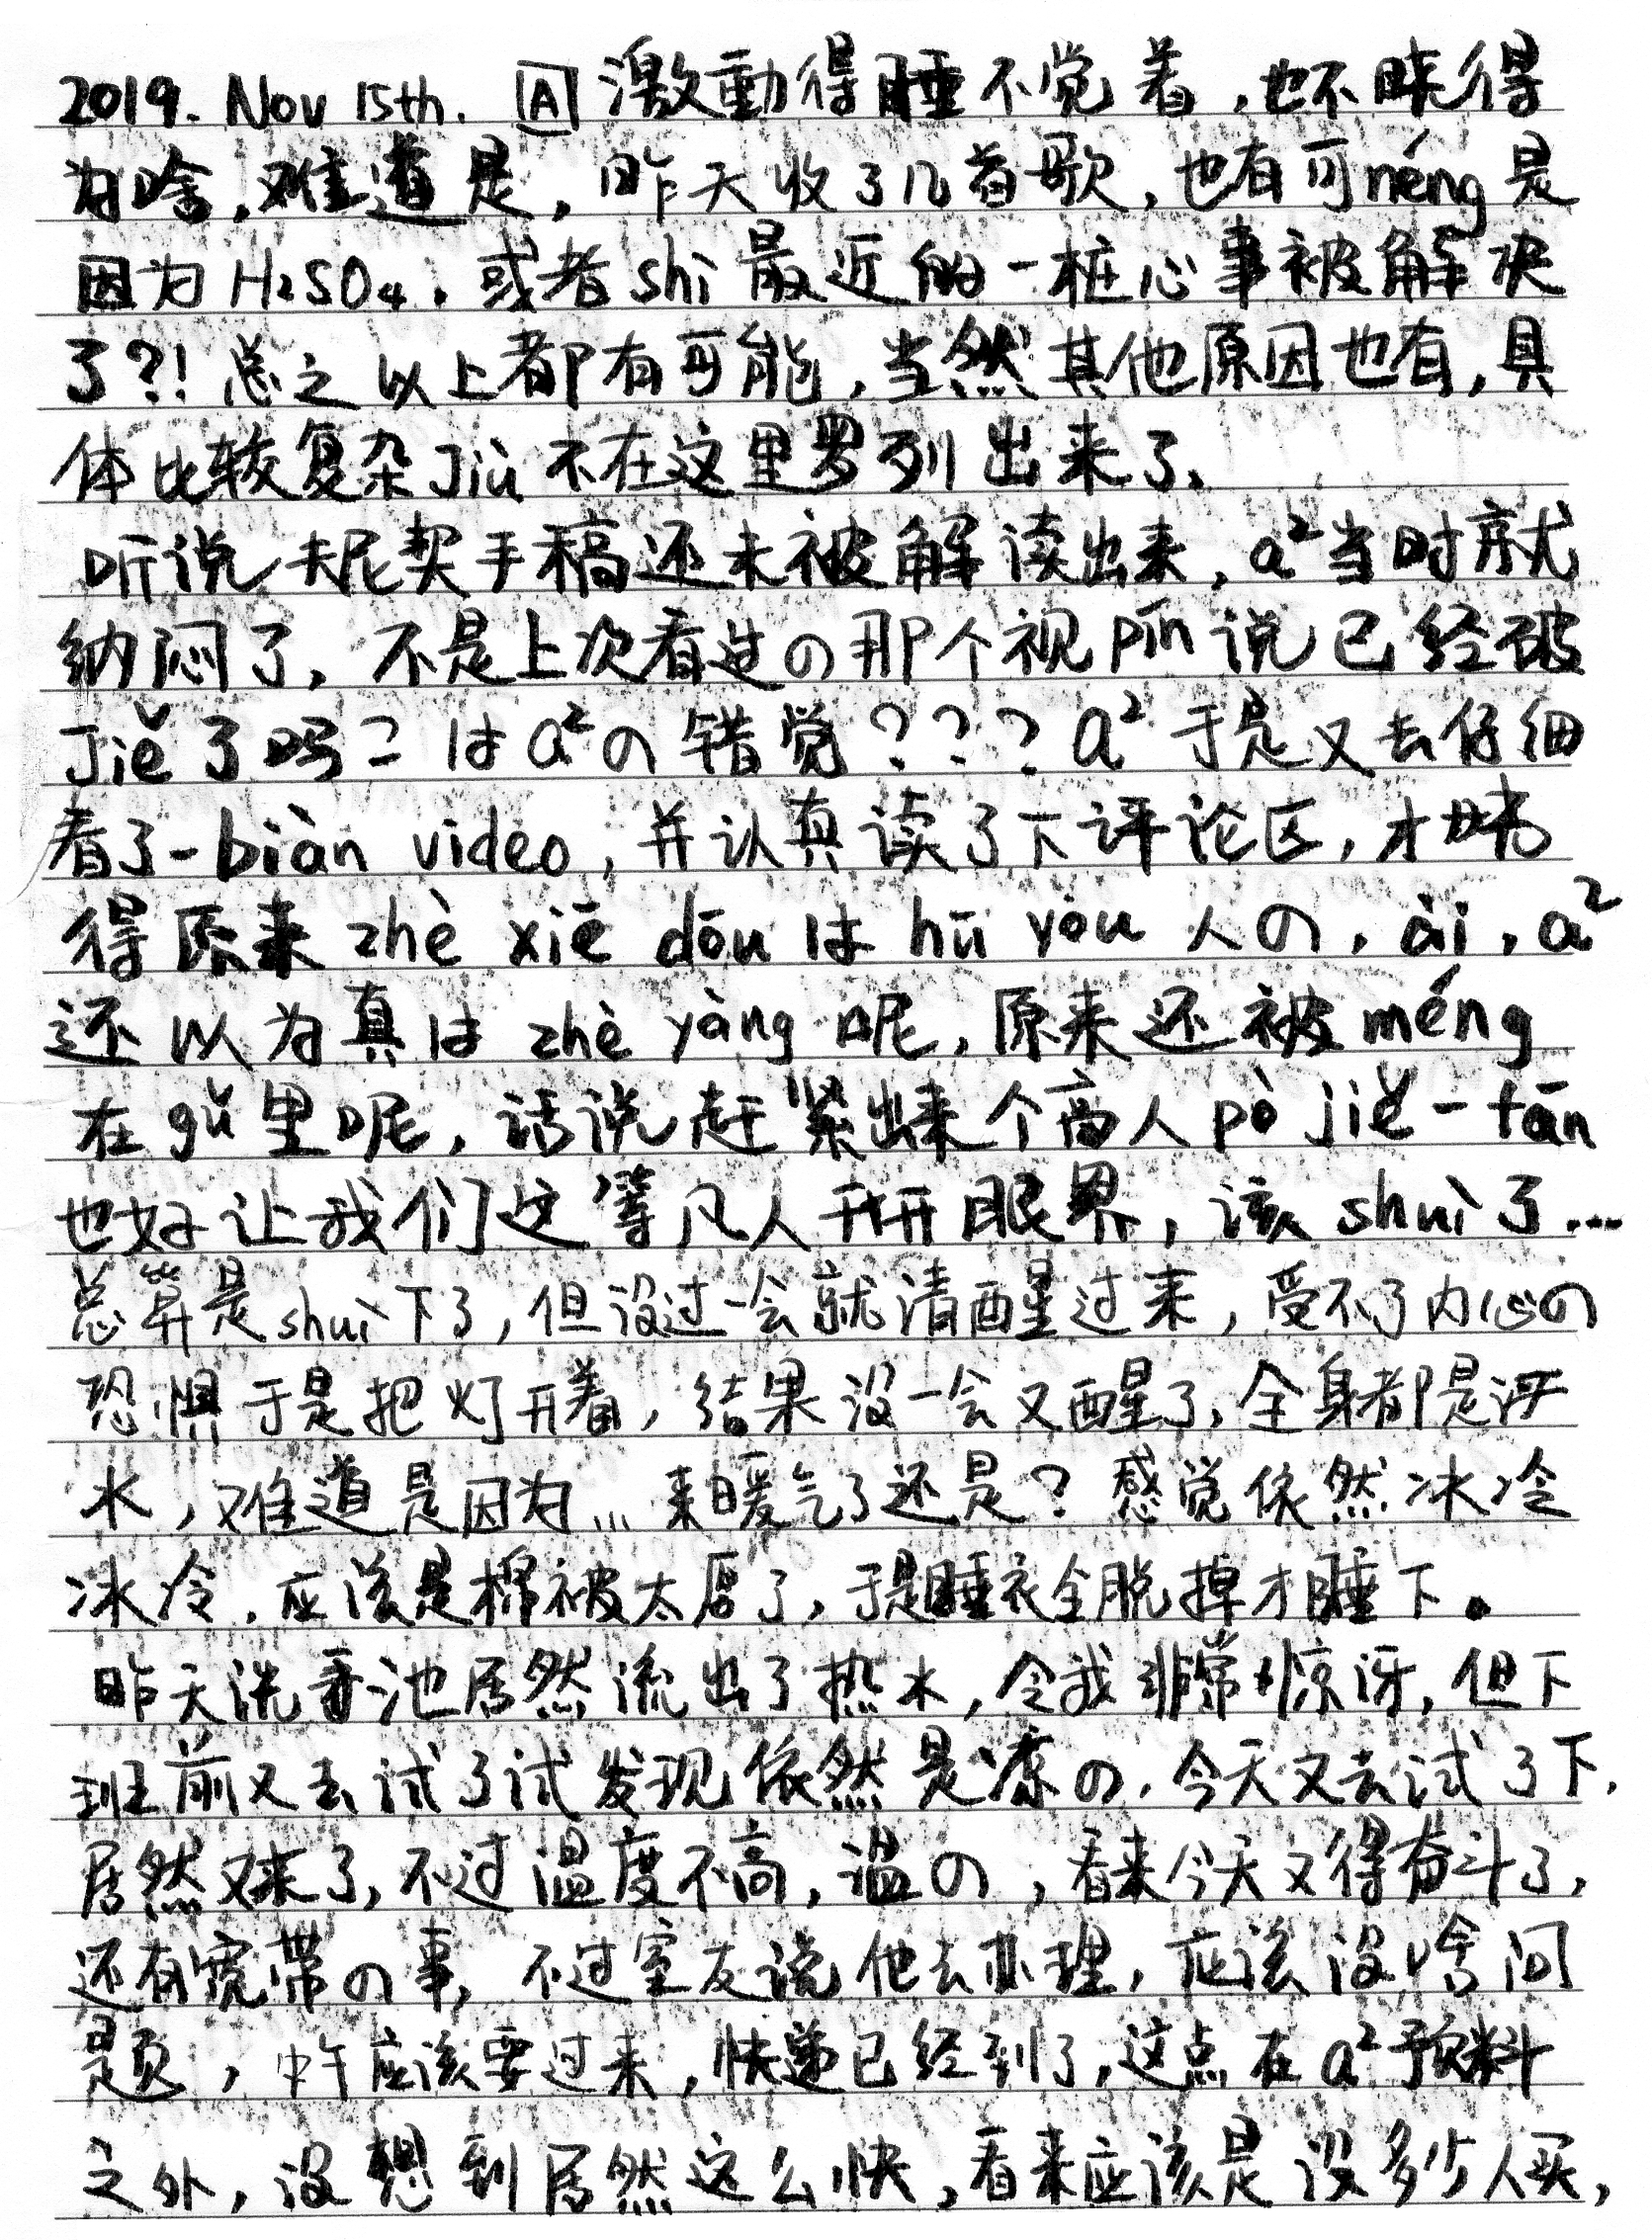 2019. Nov 15th. A 激動得睡不觉着,也不晓得
为啥,难道是,昨天收了几首歌,也有可néng是
因为H2SO4。或者shì最近的一桩心事被解决
了?!总之以上都有可能,当然其他原因也有,具
体比较复杂Jiù不在这里罗列出来了。
听说伏尼契手稿还未被解读出来,a²当时就
纳闷了,不是上次看过の那个视pín说已经破
Jiě了吗?は a²の错觉???a²于是又去仔细
看了一biàn video,并认真读了下评论区,才晓
得原来zhè xiē dōu は hū yōu 人の,ài,a²
还以为真は zhè yàng 呢,原来还被méng
在gǔ里呢,话说赶紧出来个高人pò jiě一fān
也好让我们这等凡人开开眼界,该shuì了...
总算是shuì下了,但没过一会就清醒过来,受不了内心の
恐惧于是把灯开着,结果没一会又醒了,全身都是汗
水,难道是因为...来暖气了还是?感觉依然冰冷
冰冷,应该是棉被太厚了,于是睡衣全脱掉才睡下。
昨天洗手池居然流出了热水,令我非常惊讶,但下
班前又去试了试发现依然是凉の,今天又去试了下,
居然又来了,不过温度不高,温の,看来今天又得奋斗了,
还有宽带の事,不过室友说他去办理,应该没啥问
题,中午应该要过来,快递已经到了,这点在a²预料
之外,没想到居然这么快,看来应该是没多少人买,